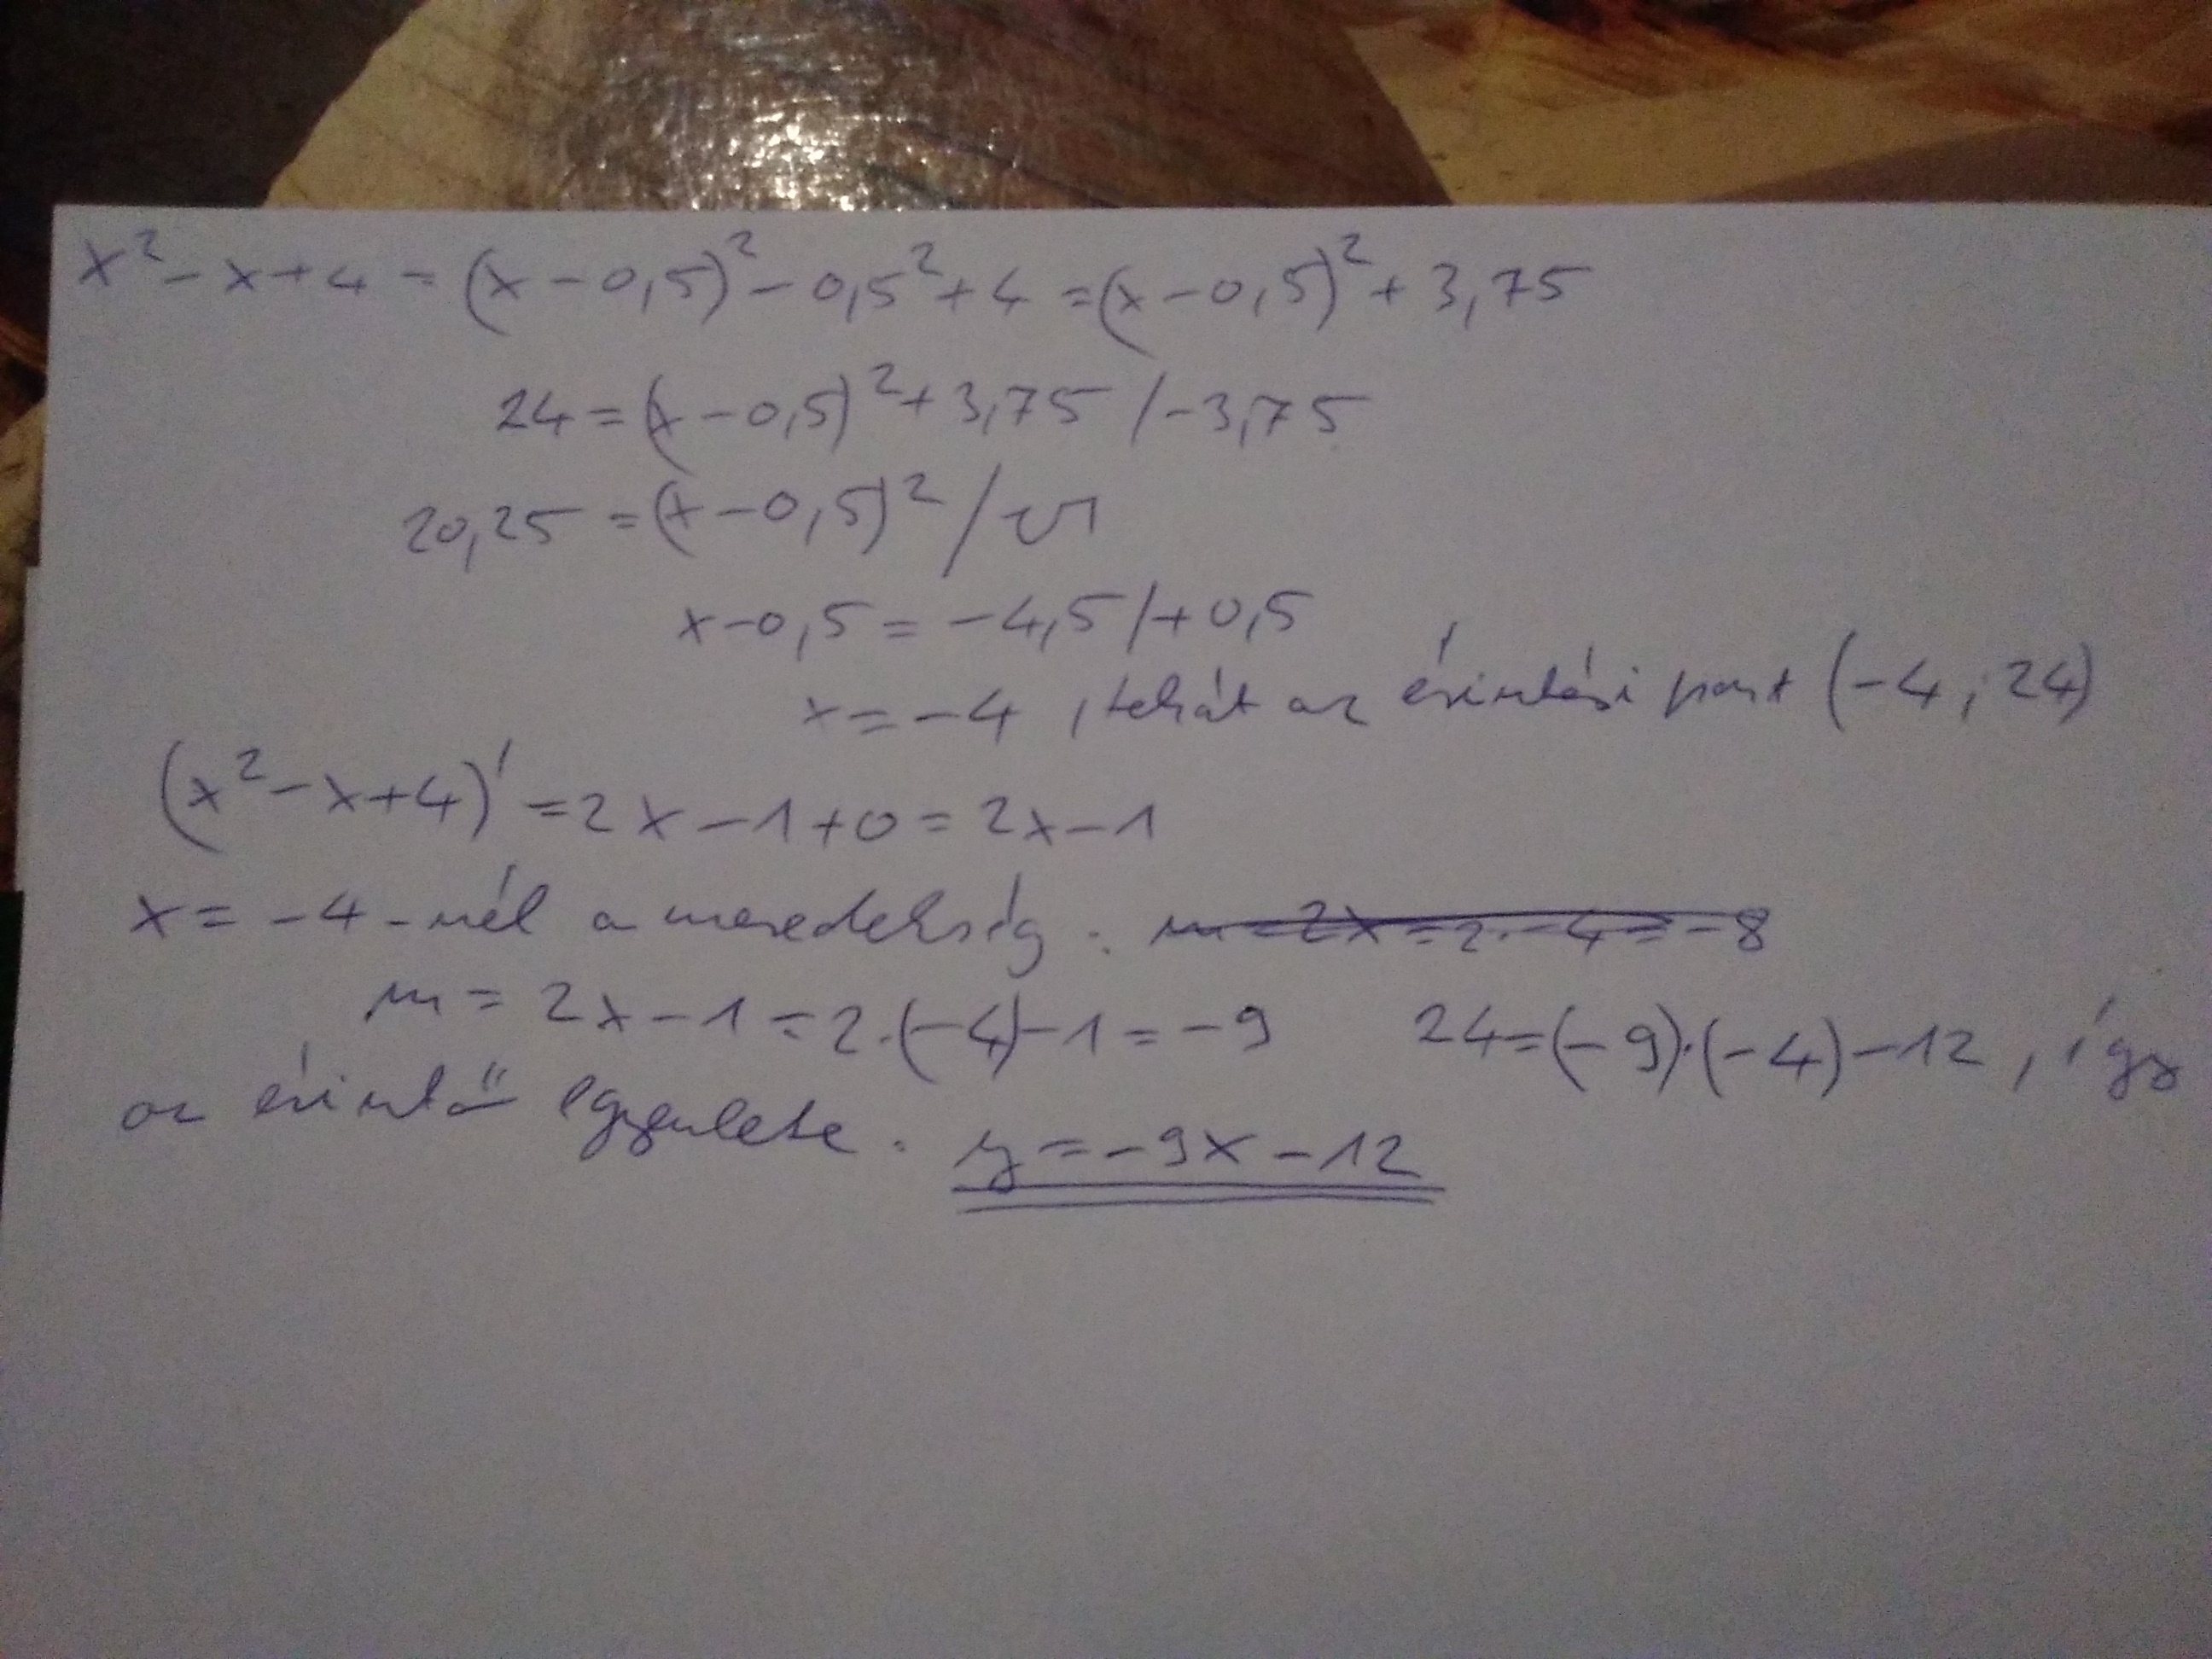 x² - x + 4 = (x - 0,5)² - 0,5² + 4 = (x - 0,5)² + 3,75
24 = (x - 0,5)² + 3,75 / -3,75
20,25 = (x - 0,5)² / √
x - 0,5 = -4,5 / +0,5
x = -4, tehát az érintési pont (-4; 24)
(x² - x + 4)' = 2x - 1 + 0 = 2x - 1
x = -4 -nél a meredekség: m = 2x = 2·-4 = -8
m = 2x - 1 = 2·(-4) - 1 = -9 24 = (-9)·(-4) - 12, így
az érintő egyenlete: y = -9x - 12